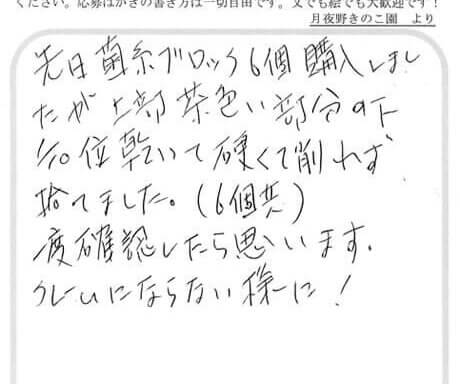 ください。応募はがきの書き方は一切自由です。文でも絵でも大歓迎です！
月夜野きのこ園　より
先日菌糸ブロック6個購入しまし
たが上部茶色い部分の下
1/10位乾いて硬くて削れず
捨てました。(6個共)
度確認したら思います。
クレームにならない様に！